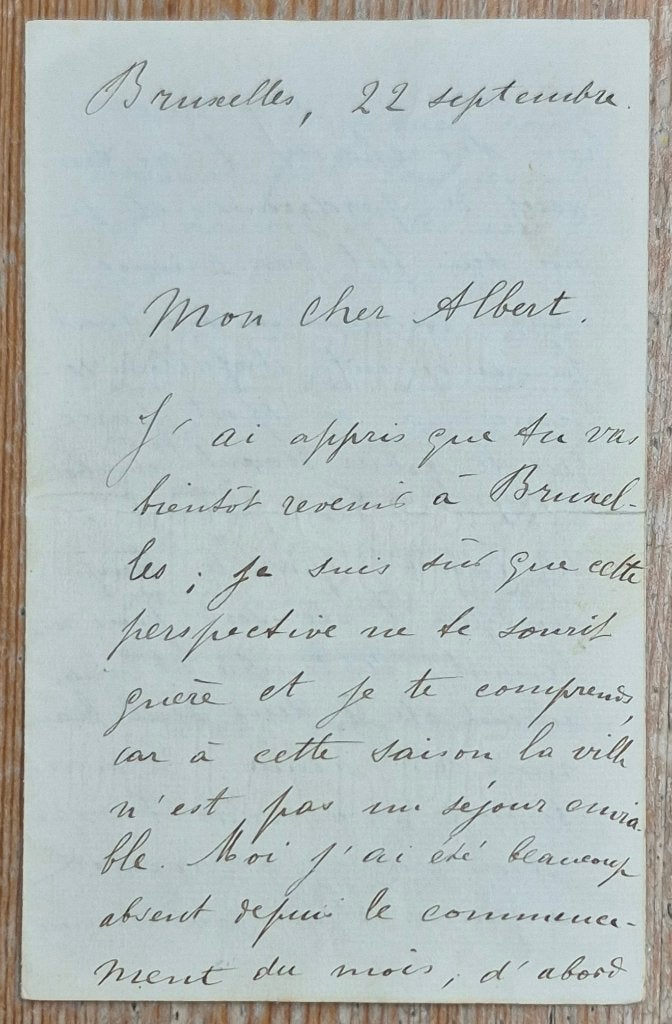 Bruxelles, 22 septembre.
Mon cher Albert.
J'ai appris que tu vas
bientôt revenir à Bruxel-
les ; je suis sûr que cette
perspective ne te sourit
guère et je te comprends,
car à cette saison la ville
n'est pas un séjour envia-
ble. Moi j'ai été beaucoup
absent depuis le commence-
ment du mois, d'abord